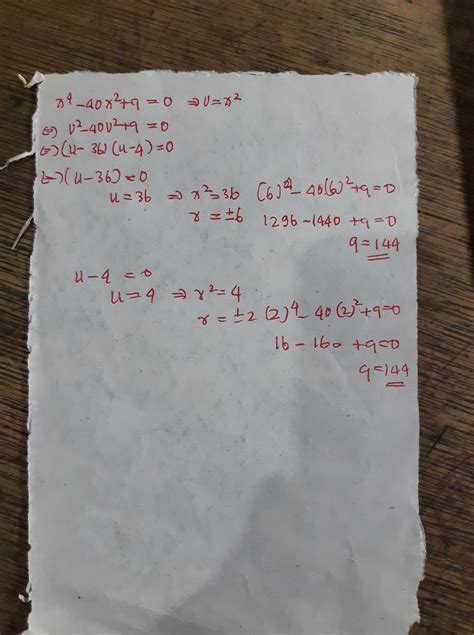 x⁴-40x²+q=0 ⇒ U=x²
⇔ U²-40U²+q=0
⇔) (u-36)(u-4)=0
⇔) (u-36)=0
u=36 ⇒ x²=36 (6)⁴-40(6)²+q=0
x=±6 1296-1440+q=0
q=144
u-4=0
u=4 ⇒ x²=4
x=±2 (2)⁴-40(2)²+q=0
16-160+q=0
q=144